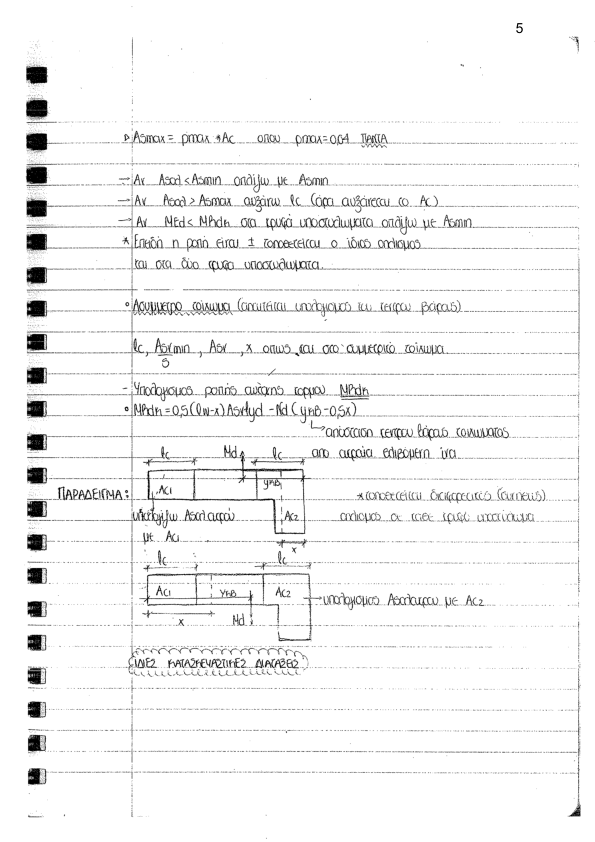 5
▹ Asmax = ρmax * Ac οπου ρmax = 0,04 ΠΑΝΤΑ
→ Αν Asαπ < Asmin οπλίζω με Asmin
→ Αν Asαπ > Asmax αυξάνω lc (άρα αυξάνεται το Ac)
→ Αν MEd < MRdπ στα κρυφά υποστυλωματα οπλίζω με Asmin
* Επειδή η ροπή είναι ± τοποθετείται ο ίδιος οπλισμος
και στα δύο κρυφα υποστυλωματα.
• Ασυμμετρο τοίχωμα (απαιτείται υπολογισμος του κεντρου βάρους)
lc, Asvmin/S, Asv, x οπως και στο συμμετρικό τοίχωμα.
- Υπολογισμος ροπής αντοχης κορμου MRdπ
• MRdπ = 0,5 (lw-x) Asvfyd - Nd (yκβ - 0,5x)
απόσταση κεντρου βάρους τοιχωματος
απο ακραία θλιβόμενη ίνα.
lc Nd lc
Ac1 yκβ
ΠΑΡΑΔΕΙΓΜΑ: * τοποθετείται διαφορετικός
Ac2 οπλισμος σε κάθε κρυφό υποστύλωμα
με Ac1 x
lc lc
Ac1 yκβ Ac2 υπολογισμος με Ac2
x Nd
ΙΔΙΕΣ ΚΑΤΑΣΚΕΥΑΣΤΙΚΕΣ ΔΙΑΤΑΞΕΙΣ